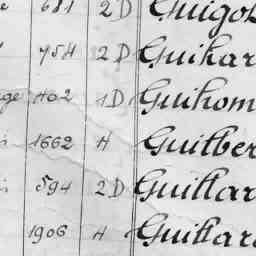 681 2D Guigo
754 2D Guihar
ge 402 1D Guihom
1662 H Guilber
594 2D Guillar
1906 H Guillar